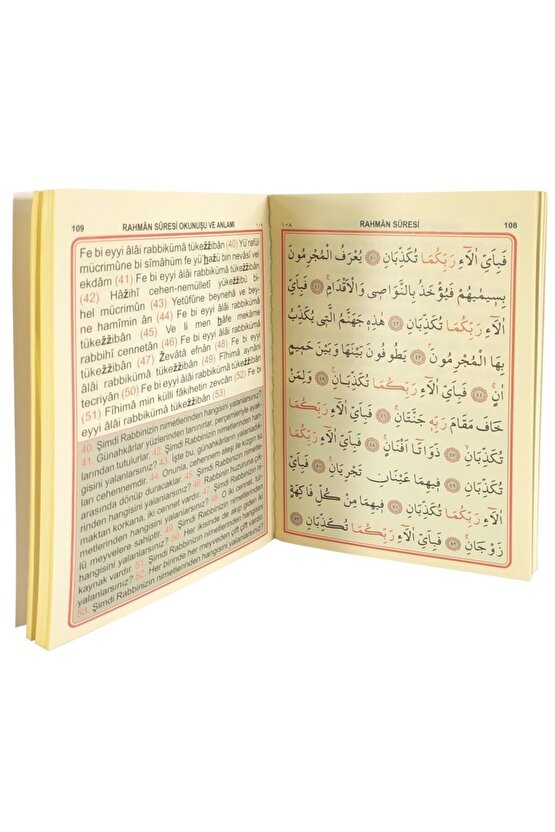 109 RAHMÂN SÛRESİ OKUNUŞU VE ANLAMI ١٠٩
Fe bi eyyi âlâi rabbikümâ tükeẕẕibân (40) Yü'rafül
mücrimûne bi sîmâhüm fe yü'ḫaẕü bin nevâsî vel
ekdâm (41) Fe bi eyyi âlâi rabbikümâ tükeẕẕibân
(42) Hâẕihî cehen-nemülletî yükeẕẕibü bi-
hel mücrimûn (43) Yetûfûne beynehâ ve bey-
ne hamîmin ân (44) Fe bi eyyi âlâi rabbikümâ
tükeẕẕibân (45) Ve li men ḫâfe mekâme
rabbihî cennetân (46) Fe bi eyyi âlâi rabbikümâ
tükeẕẕibân (47) Ẕevâtâ efnân (48) Fe bi eyyi
âlâi rabbikümâ tükeẕẕibân (49) Fîhimâ aynâni
tecriyân (50) Fe bi eyyi âlâi rabbikümâ tükeẕẕibân
(51) Fîhimâ min külli fâkihetin zevcân (52) Fe bi
eyyi âlâi rabbikümâ tükeẕẕibân (53)
40. Şimdi Rabbinizin nimetlerinden hangisini yalanlarsınız?
41. Günahkârlar yüzlerinden tanırlar, perçemleriyle ayak-
larından tutulurlar. 42. Şimdi Rabbinizin nimetlerinden han-
gisini yalanlarsınız? 43. İşte bu, günahkârların yalanladık-
ları cehennemdir. 44. Onunla, cehennem ateşi ile kızgın su
arasında dönüp duracaklar. 45. Şimdi Rabbinizin nimetle-
rinden hangisini yalanlarsınız? 46. Rabbin huzuruna çık-
maktan korkana, iki cennet vardır. 47. Şimdi Rabbinizin
nimetlerinden hangisini yalanlarsınız? 48. O iki cennet, tür-
lü meyvelere sahiptir. 49. Şimdi Rabbinizin nimetlerinden
hangisini yalanlarsınız? 50. Her ikisinde de akıp giden iki
kaynak vardır. 51. Şimdi Rabbinizin nimetlerinden hangisini
yalanlarsınız? 52. Her birinde her meyveden çift çift vardır.
53. Şimdi Rabbinizin nimetlerinden hangisini yalanlarsınız?
١٠٨ RAHMÂN SÛRESİ 108
فَبِاَيِّ اٰلَٓاءِ رَبِّكُمَا تُكَذِّبَانِ ﴿٤٠﴾ يُعْرَفُ الْمُجْرِمُونَ
بِسِيمٰيهُمْ فَيُؤْخَذُ بِالنَّوَاصِي وَالْاَقْدَامِۚ ﴿٤١﴾ فَبِاَيِّ
اٰلَٓاءِ رَبِّكُمَا تُكَذِّبَانِ ﴿٤٢﴾ هٰذِهِ جَهَنَّمُ الَّتِي يُكَذِّبُ
بِهَا الْمُجْرِمُونَۘ ﴿٤٣﴾ يَطُوفُونَ بَيْنَهَا وَبَيْنَ حَمِيمٍ
اٰنٍۚ ﴿٤٤﴾ فَبِاَيِّ اٰلَٓاءِ رَبِّكُمَا تُكَذِّبَانِ۟ ﴿٤٥﴾ وَلِمَنْ
خَافَ مَقَامَ رَبِّهِ جَنَّتَانِۚ ﴿٤٦﴾ فَبِاَيِّ اٰلَٓاءِ رَبِّكُمَا
تُكَذِّبَانِۙ ﴿٤٧﴾ ذَوَاتَٓا اَفْنَانٍۚ ﴿٤٨﴾ فَبِاَيِّ اٰلَٓاءِ رَبِّكُمَا
تُكَذِّبَانِ ﴿٤٩﴾ فِيهِمَا عَيْنَانِ تَجْرِيَانِۚ ﴿٥٠﴾ فَبِاَيِّ
اٰلَٓاءِ رَبِّكُمَا تُكَذِّبَانِ ﴿٥١﴾ فِيهِمَا مِنْ كُلِّ فَاكِهَةٍ
زَوْجَانِۚ ﴿٥٢﴾ فَبِاَيِّ اٰلَٓاءِ رَبِّكُمَا تُكَذِّبَانِ ﴿٥٣﴾